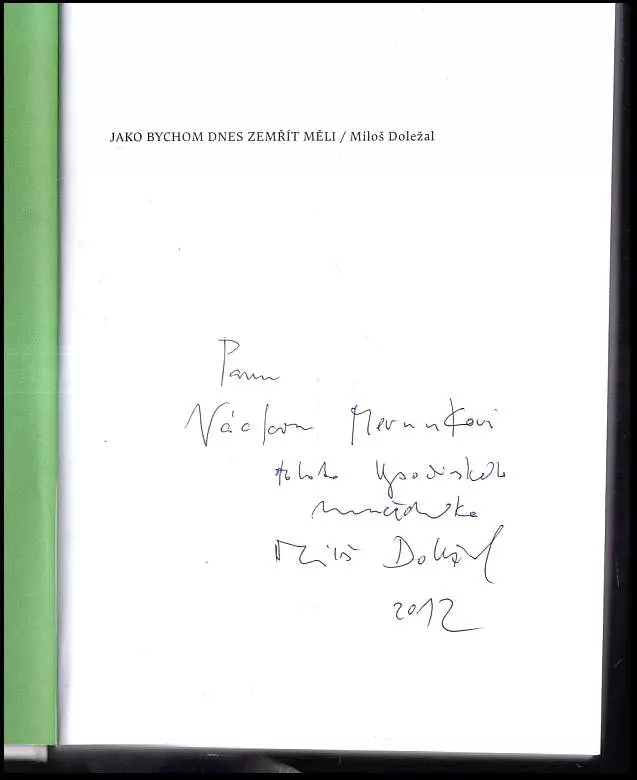 JAKO BYCHOM DNES ZEMŘÍT MĚLI / Miloš Doležal
Panu
Václavu Merunkovi
tohoto Vysočinského
mučedníka
Miloš Doležal
2012